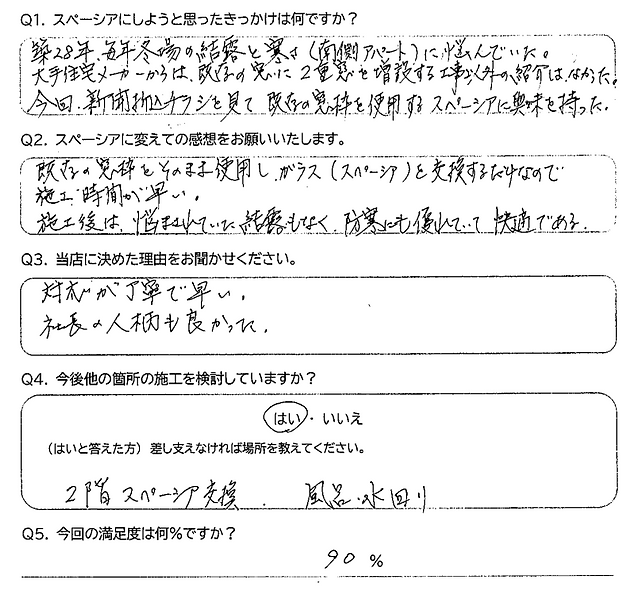 Q1. スペーシアにしようと思ったきっかけは何ですか？
築28年、毎年冬場の結露と寒さ(南側アパート)に悩んでいた。
大手住宅メーカーからは、既存の窓に2重窓を増設する工事以外の紹介はなかった。
今回、新聞折込チラシを見て既存の窓枠を使用するスペーシアに興味を持った。
Q2. スペーシアに変えての感想をお願いいたします。
既存の窓枠をそのまま使用し、ガラス(スペーシア)を交換するだけなので
施工時間が早い。
施工後は、悩まされていた結露もなく、防寒にも優れていて快適である。
Q3. 当店に決めた理由をお聞かせください。
対応が丁寧で早い。
社長の人柄も良かった。
Q4. 今後他の箇所の施工を検討していますか？
はい・いいえ
（はいと答えた方）差し支えなければ場所を教えてください。
2階スペーシア交換、風呂・水回り
Q5. 今回の満足度は何％ですか？
90 %